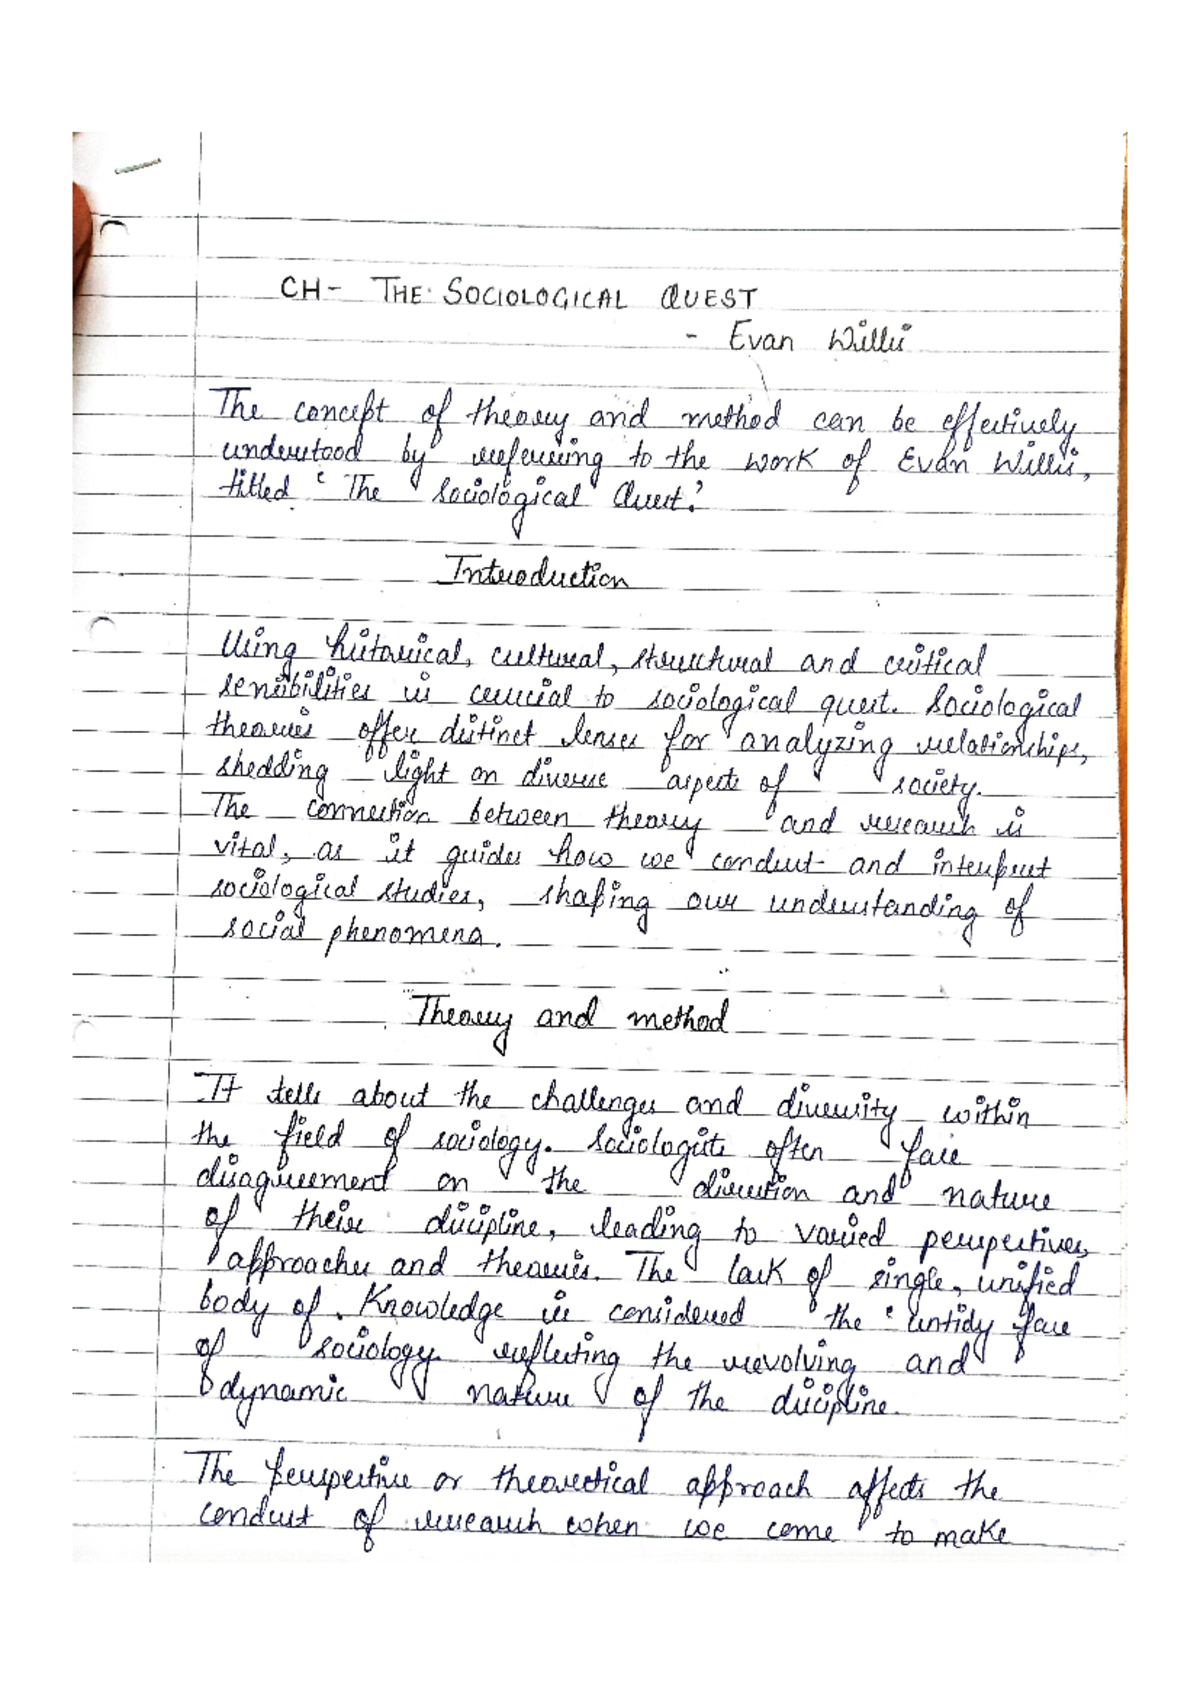 CH- THE SOCIOLOGICAL QUEST
- Evan Willis
The concept of theory and method can be effectively
understood by referring to the work of Evan Willis,
titled 'The Sociological Quest.'
Introduction
Using historical, cultural, structural and critical
sensibilities is crucial to sociological quest. Sociological
theories offer distinct lenses for analyzing relationships,
shedding light on diverse aspects of society.
The connection between theory and research is
vital, as it guides how we conduct and interpret
sociological studies, shaping our understanding of
social phenomena.
Theory and method
It tells about the challenges and diversity within
the field of sociology. Sociologists often face
disagreement on the direction and nature
of their discipline, leading to varied perspectives,
approaches and theories. The lack of single, unified
body of knowledge is considered the 'untidy face
of sociology reflecting the revolving and
dynamic nature of the discipline.
The perspective or theoretical approach affects the
conduct of research when we come to make